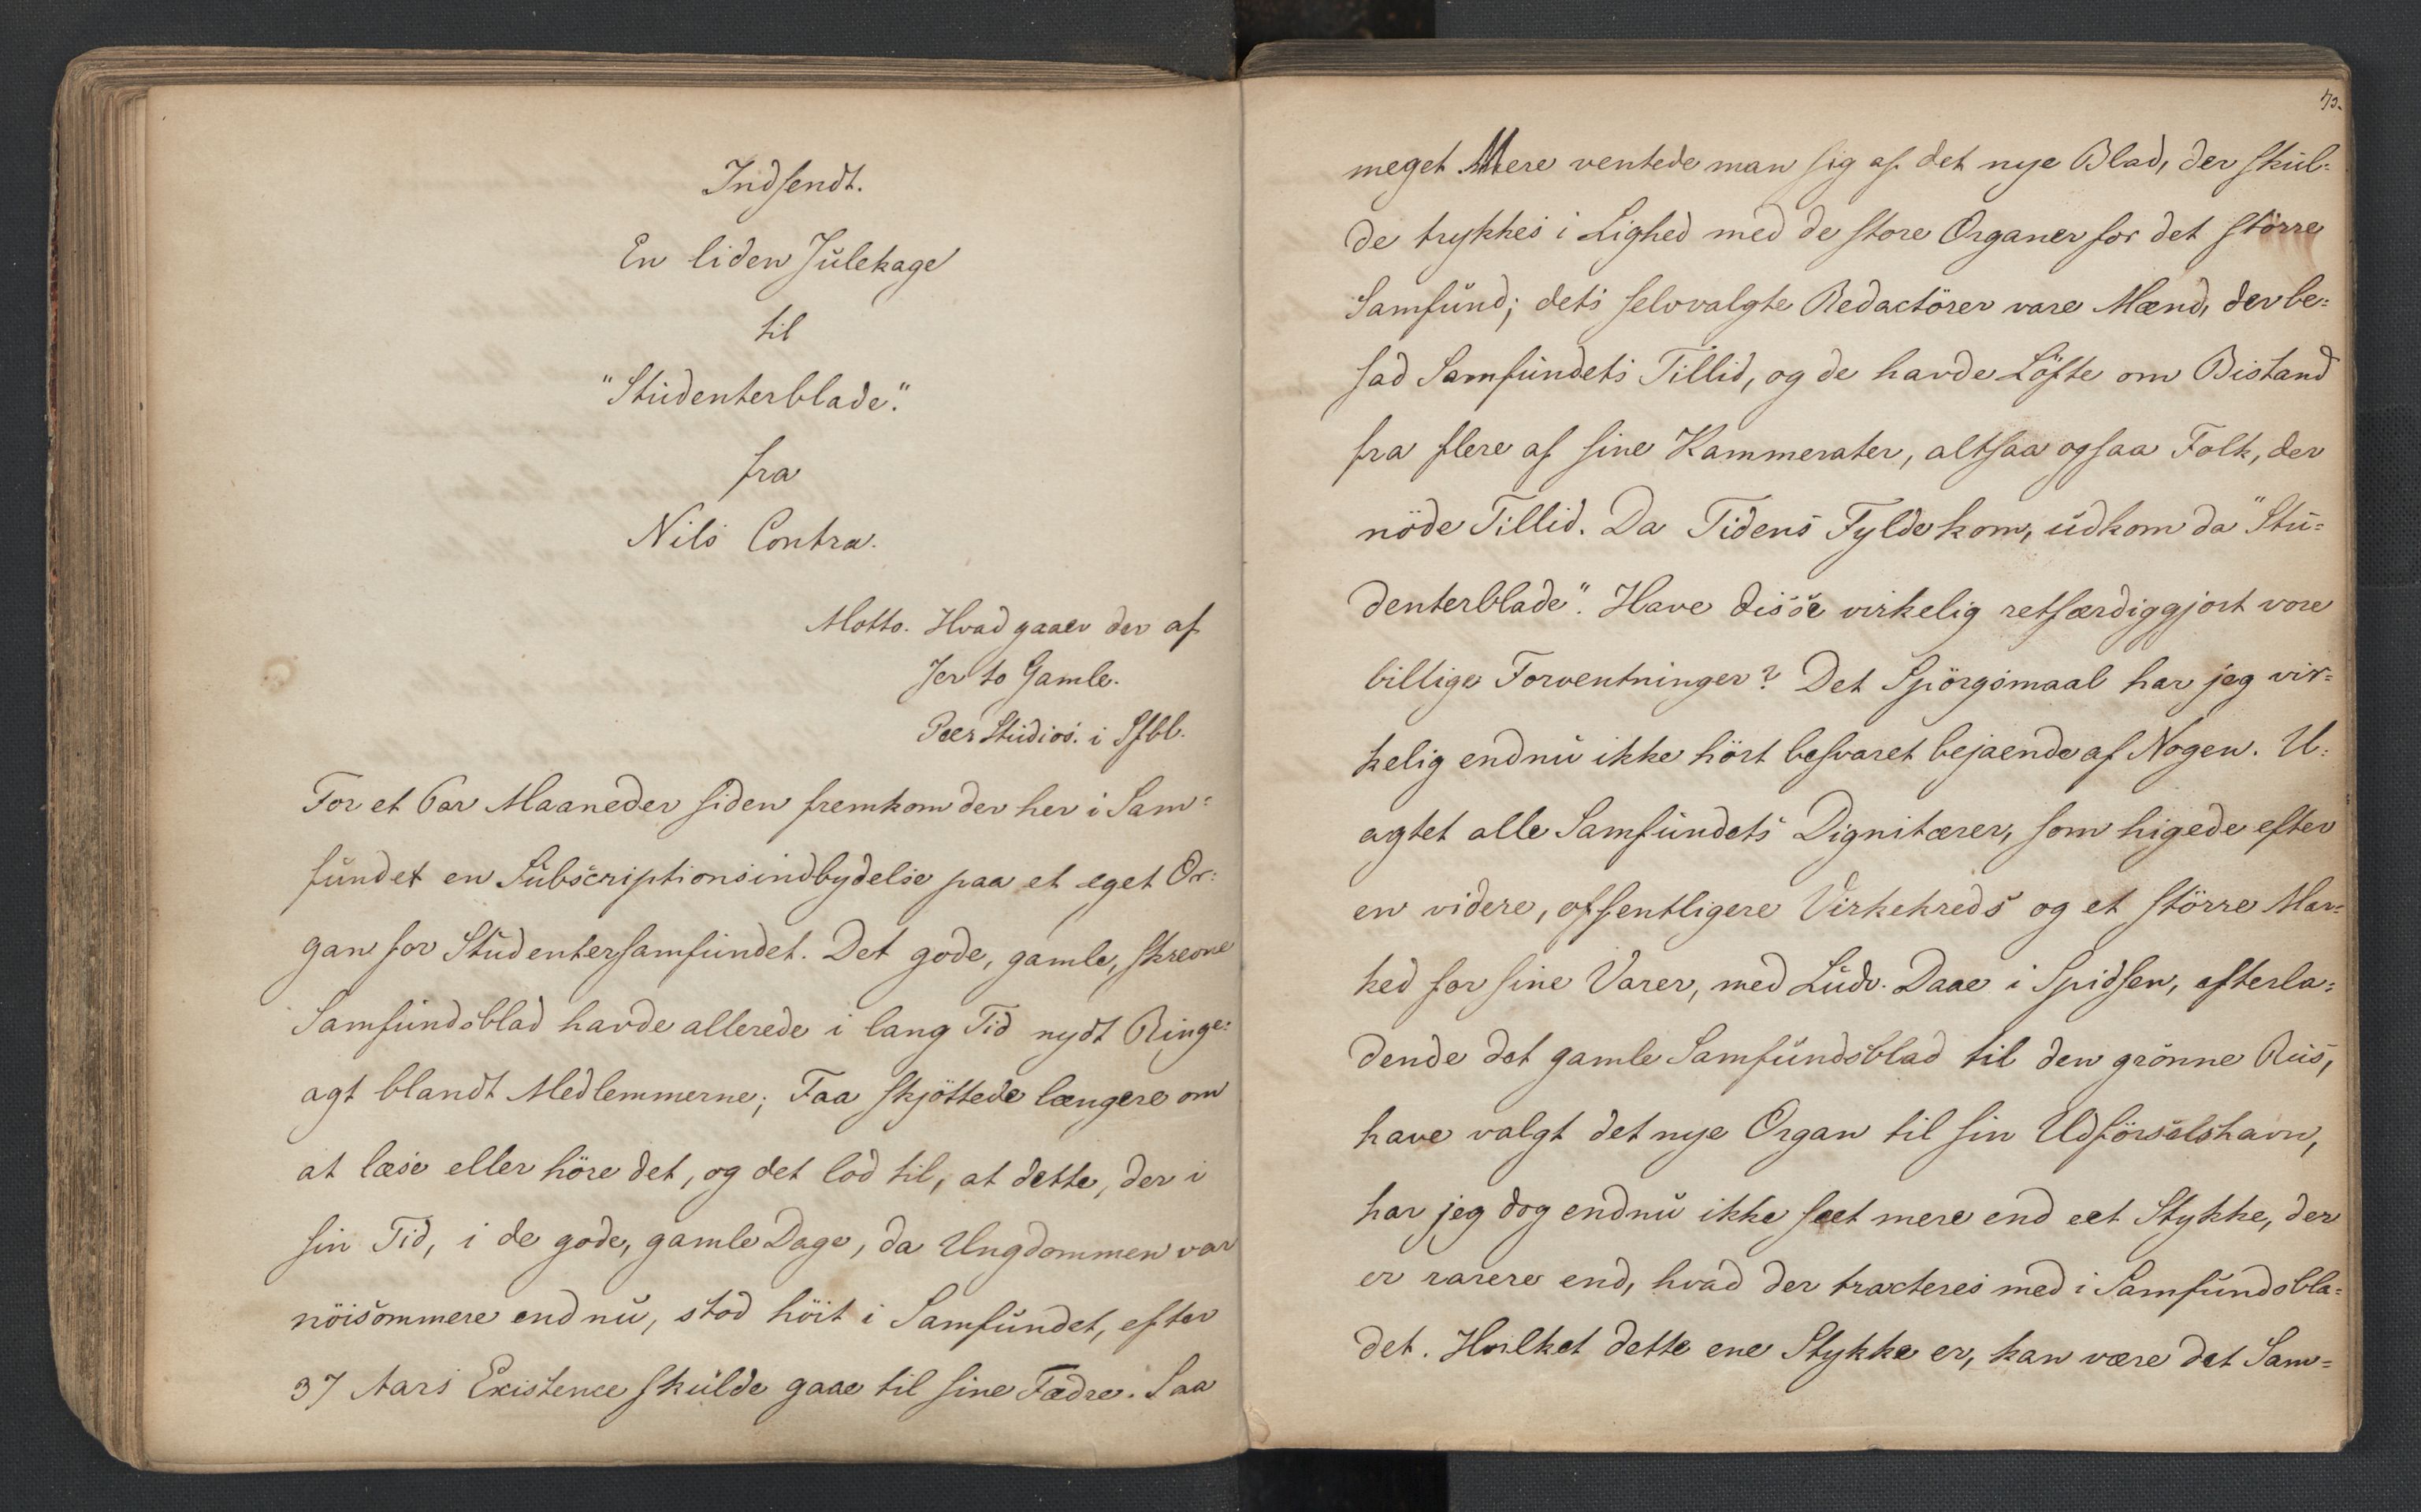 Indsendt.
En liden Julekage
til
"Studenterblade".
fra
Nils Contra.
Motto. Hvad gaaer der af
Jer to Gamle.
Peer Studios. i Sfbl.
For et Par Maaneder siden fremkom der her i Sam=
fundet en Subscriptionsindbydelse paa et eget Or=
gan for Studentersamfundet. Det gode, gamle, skrevne
Samfundsblad havde allerede i lang Tid nydt Ringe=
agt blandt Medlemmerne; Faa skjöttede længere om
at læse eller höre det, og det lod til, at dette, der i
sin Tid, i de gode, gamle Dage, da Ungdommen var
nöisommere end nu, stod höit i Samfundet, efter
37 Aars Existence skulde gaae til sine Fædre. Saa
73.
meget Mere ventede man sig af det nye Blad, der skul=
de trykkes i Lighed med de store Organer for det större
Samfund; dets selvvalgte Redactörer vare Mænd, der be=
sad Samfundets Tillid, og de havde Löfte om Bistand
fra flere af sine Kammerater, altsaa ogsaa Folk, der
nöde Tillid. Da Tidens Fylde kom, udkom da "Stu=
denterblade". Have disse virkelig retfærdiggjort vore
billige Forventninger? Det Spörgsmaal har jeg vir=
kelig endnu ikke hört besvaret bejaende af Nogen. U=
agtet alle Samfundets Dignitærer, som higede efter
en videre, offentligere Virkekreds og et större Mar=
ked for sine Varer, med Ludv. Daae i Spidsen, efterla=
dende det gamle Samfundsblad til den grönne Rus,
have valgt det nye Organ til sin Udförselshavn,
har jeg dog endnu ikke seet mere end eet Stykke, der
er rarere end, hvad der tracteres med i Samfundsbla=
det. Hvilket dette ene Stykke er, kan være det Sam=